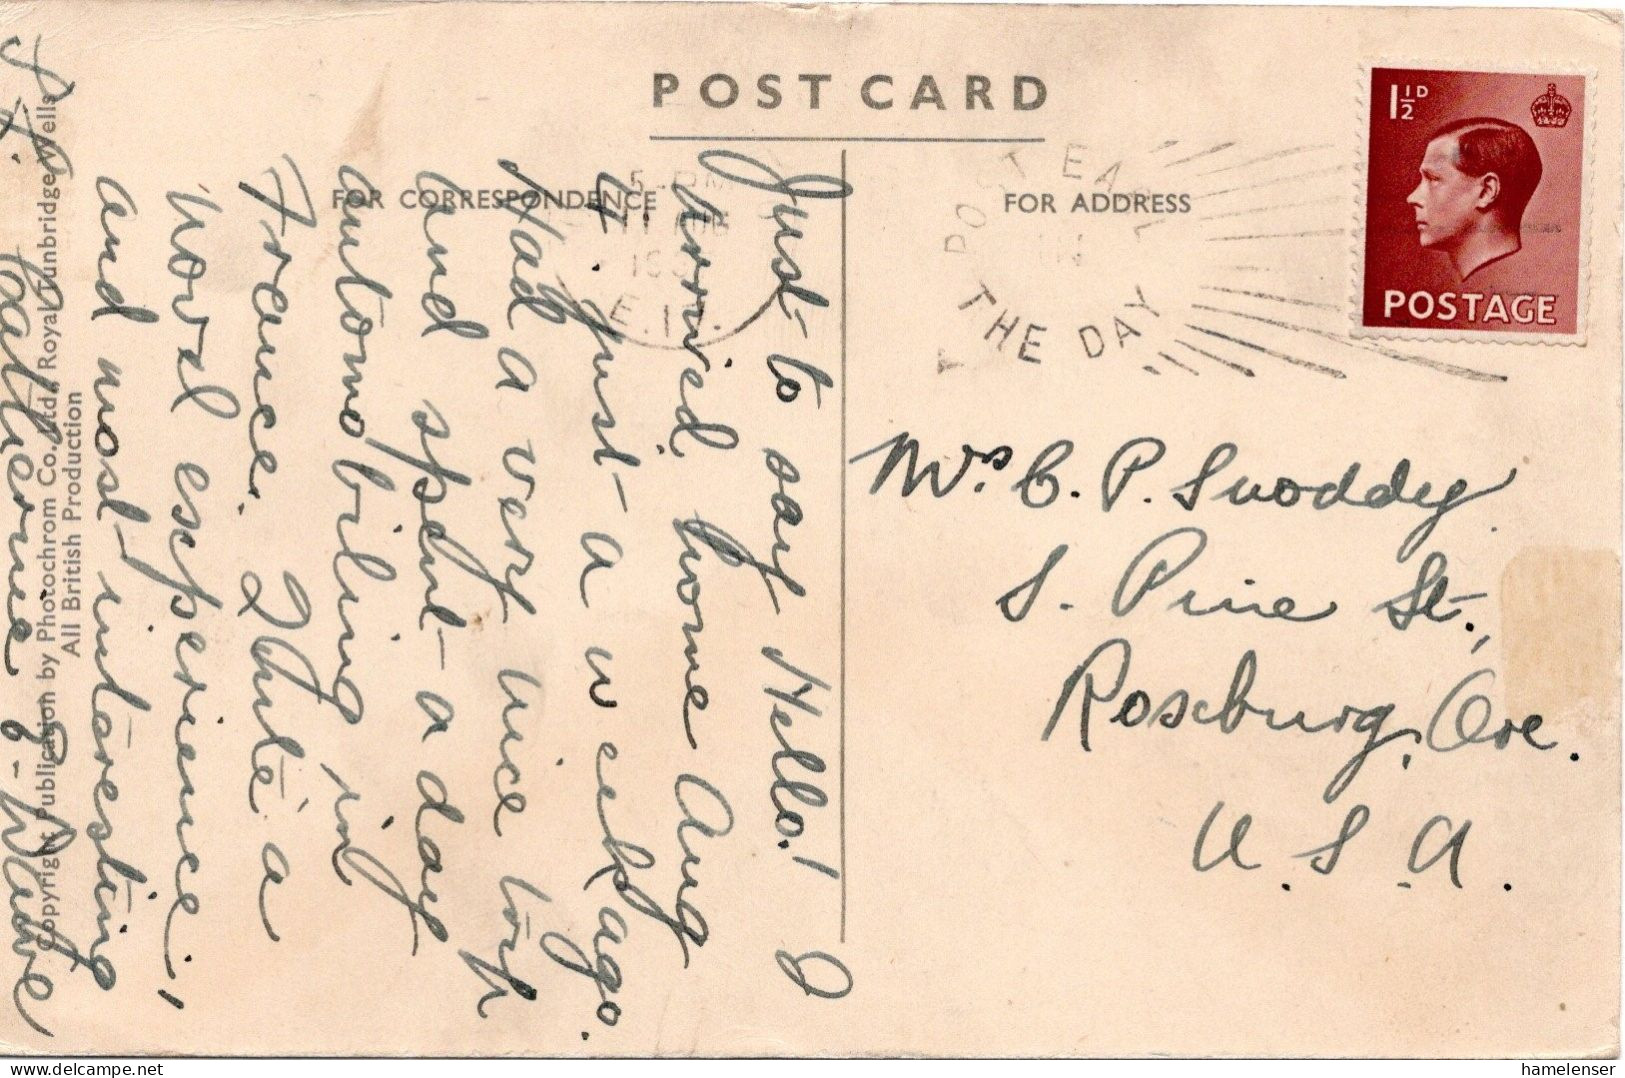 POST CARD
FOR CORRESPONDENCE
FOR ADDRESS
1½D
POSTAGE
POST EARLY
IN
THE DAY
5 - PM
11
E.1
Just to say Hello! I
arrived home Aug
4. just a week ago.
Had a very nice trip
and spent a day
automobiling in
France. Quite a
novel experience,
and most interesting
Mrs. C. P. Snoddy
S. Pine St.,
Roseburg, Ore.
U. S. A.
Copyright Publication by Photochrom Co., Ltd., Royal Tunbridge Wells
All British Production
hamelenser